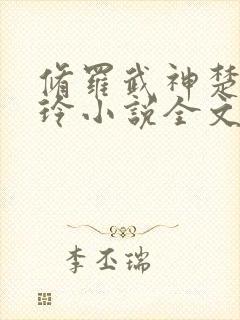 脩羅武神楚
玲小說全文
李丕瑞